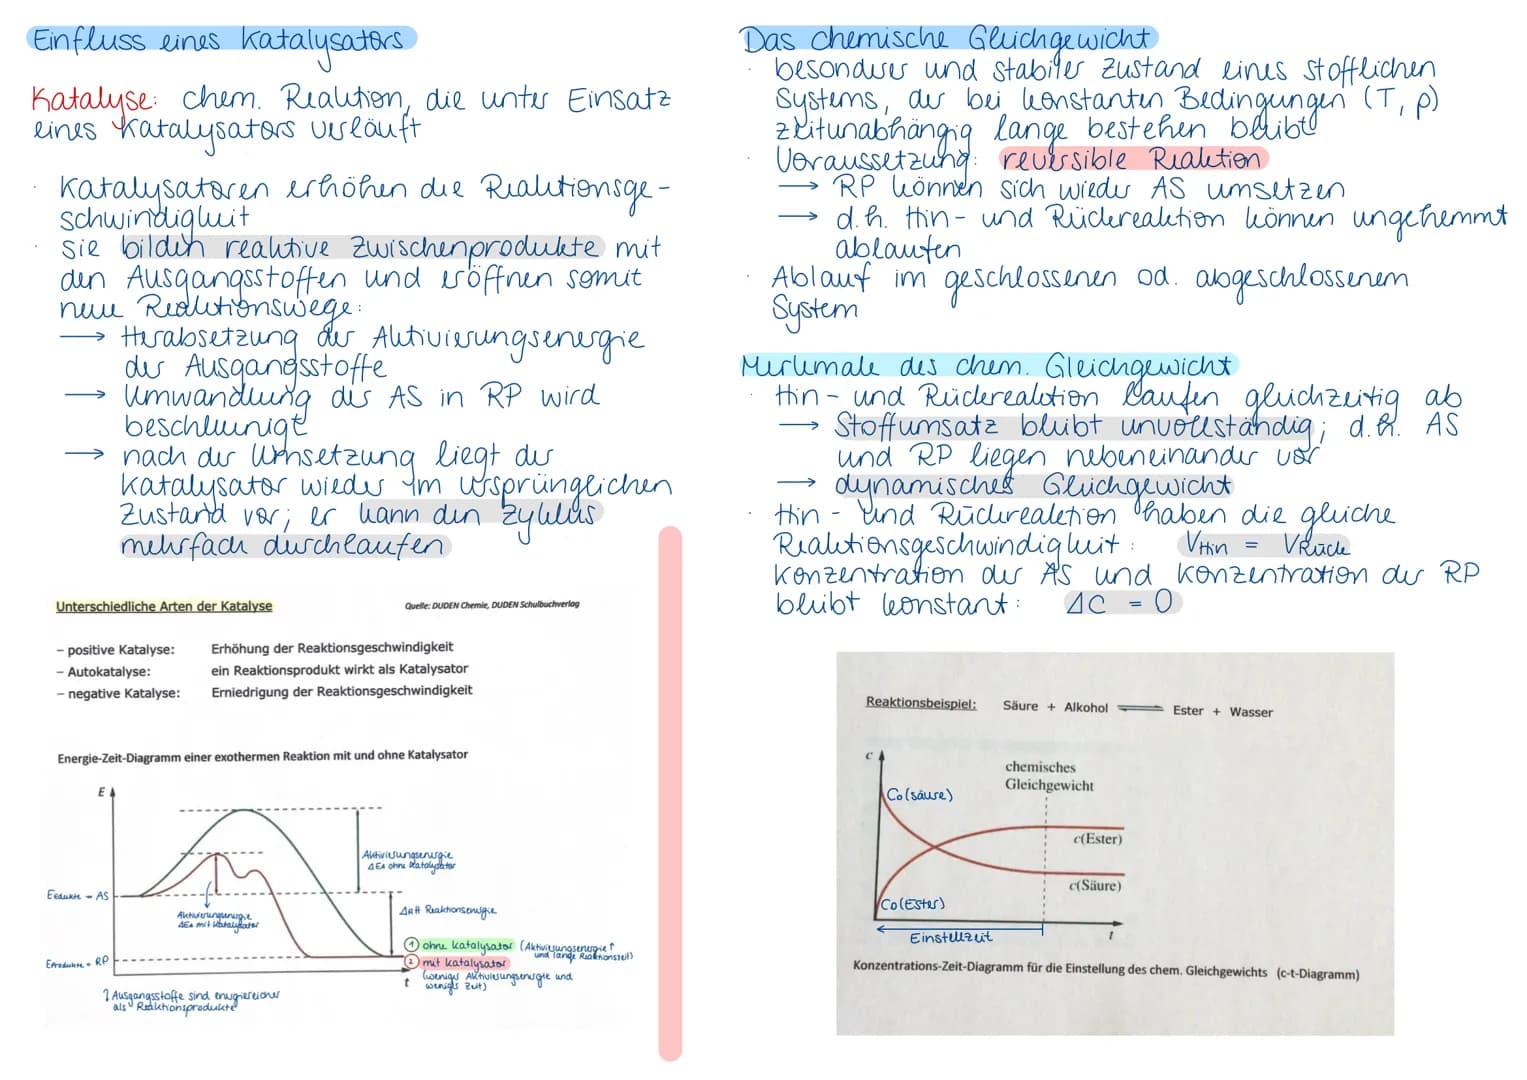 Einfluss eines Katalysators
Katalyse: chem. Reaktion, die unter Einsatz
eines Katalysators verläuft
· Katalysatoren erhöhen die Reaktionsge-
schwindigkeit
· sie bilden reaktive Zwischenprodukte mit
den Ausgangsstoffen und eröffnen somit
neue Reaktionswege:
→ Herabsetzung der Aktivierungsenergie
der Ausgangsstoffe
→ Umwandlung der AS in RP wird
beschleunigt
→ nach der Umsetzung liegt der
Katalysator wieder im ursprünglichen
Zustand vor; er kann den Zyklus
mehrfach durchlaufen
Unterschiedliche Arten der Katalyse
Quelle: DUDEN Chemie, DUDEN Schulbuchverlag
– positive Katalyse: Erhöhung der Reaktionsgeschwindigkeit
– Autokatalyse: ein Reaktionsprodukt wirkt als Katalysator
– negative Katalyse: Erniedrigung der Reaktionsgeschwindigkeit
Energie-Zeit-Diagramm einer exothermen Reaktion mit und ohne Katalysator
E
Aktivierungsenergie
ΔEA ohne Katalysator
EEdukte = AS
Aktivierungsenergie
ΔEA mit Katalysator
ΔRH Reaktionsenergie
EProdukte = RP
① ohne Katalysator (Aktivierungsenergie ↑
und lange Reaktionszeit)
② mit Katalysator
(weniger Aktivierungsenergie und
weniger Zeit)
t
↑ Ausgangsstoffe sind energiereicher
als Reaktionsprodukte
Das chemische Gleichgewicht
· besonderer und stabiler Zustand eines stofflichen
Systems, der bei konstanten Bedingungen (T, p)
zeitunabhängig lange bestehen bleibt
· Voraussetzung: reversible Reaktion
→ RP können sich wieder AS umsetzen
→ d.h. Hin- und Rückreaktion können ungehemmt
ablaufen
· Ablauf im geschlossenen od. abgeschlossenem
System
Merkmale des chem. Gleichgewicht
· Hin- und Rückreaktion laufen gleichzeitig ab
→ Stoffumsatz bleibt unvollständig; d.h. AS
und RP liegen nebeneinander vor
→ dynamisches Gleichgewicht
· Hin- und Rückreaktion haben die gleiche
Reaktionsgeschwindigkeit: VHin = VRück
Konzentration der AS und Konzentration der RP
bleibt konstant: ΔC = 0
Reaktionsbeispiel: Säure + Alkohol ⇌ Ester + Wasser
c
chemisches
Gleichgewicht
Co(säure)
c(Ester)
c(Säure)
Co(Ester)
Einstellzeit
t
Konzentrations-Zeit-Diagramm für die Einstellung des chem. Gleichgewichts (c-t-Diagramm)